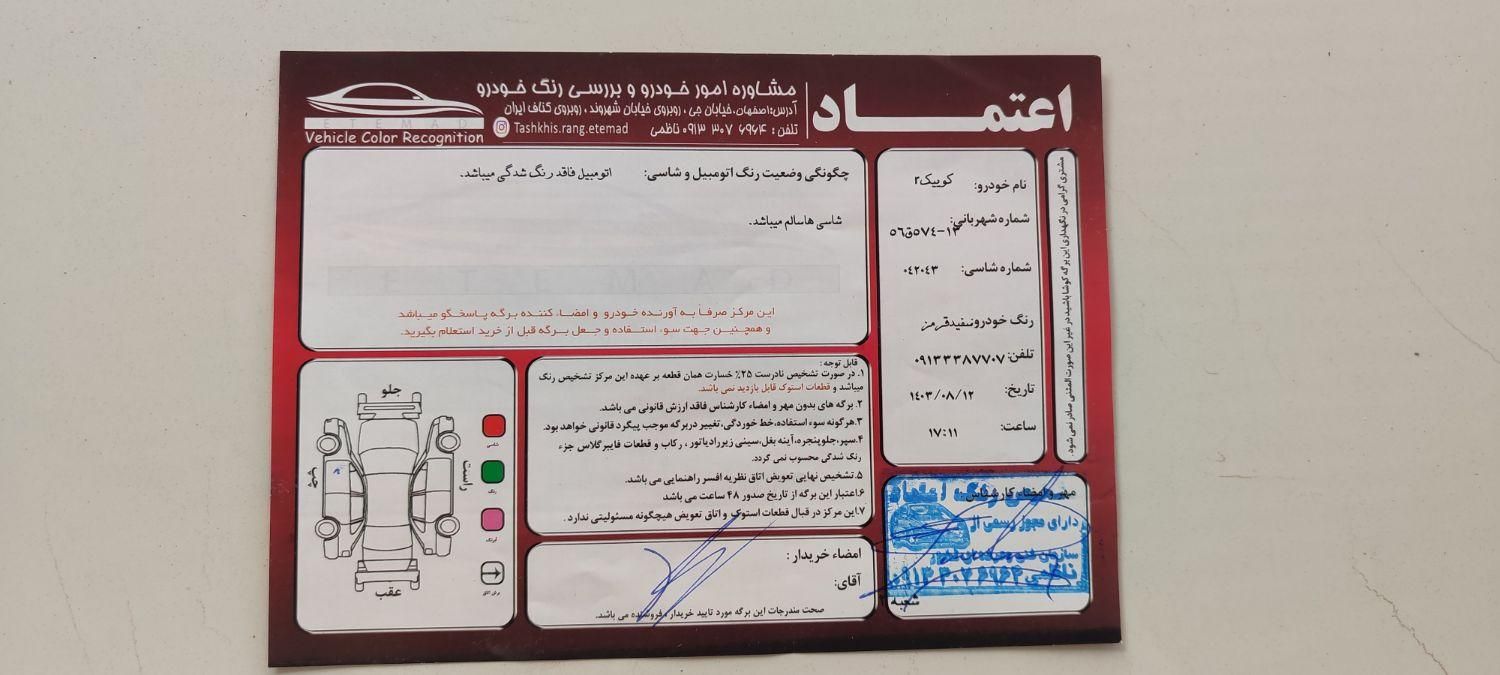 اعتماد
مشاوره امور خودرو و بررسی رنگ خودرو
آدرس:اصفهان،خیابان جی ، روبروی خیابان شهروند ، روبروی کناف ایران
تلفن : ۰۹۱۳ ۳۰۷ ۶۹۶۴ ناظمی
Tashkhis.rang.etemad
ETEMAD
Vehicle Color Recognition
مشتری گرامی در نگهداری این برگه کوشا باشید در غیر این صورت المثنی صادر نمی شود.
نام خودرو: کوییکr
شماره شهربانی: ۵۶ق۵۷۴-۱۳
شماره شاسی: ۰۴۲۰۴۳
رنگ خودرو: سفیدقرمز
تلفن: ۰۹۱۳۳۳۸۷۷۰۷
تاریخ: ۱۴۰۳/۰۸/۱۲
ساعت: ۱۷:۱۱
چگونگی وضعیت رنگ اتومبیل و شاسی: اتومبیل فاقد رنگ شدگی میباشد.
شاسی هاسالم میباشد.
این مرکز صرفاً به آورنده خودرو و امضاء کننده برگه پاسخگو میباشد
و همچنین جهت سوء استفاده و جعل برگه قبل از خرید استعلام بگیرید.
قابل توجه :
۱. در صورت تشخیص نادرست ۲۵٪ خسارت همان قطعه بر عهده این مرکز تشخیص رنگ
میباشد و قطعات استوک قابل بازدید نمی باشد.
۲. برگه های بدون مهر و امضاء کارشناس فاقد ارزش قانونی می باشد.
۳.هرگونه سوء استفاده،خط خوردگی،تغییر دربرگه موجب پیگرد قانونی خواهد بود.
۴.سپر،جلوپنجره،آینه بغل،سینی زیررادیاتور ، رکاب و قطعات فایبرگلاس جزء
رنگ شدگی محسوب نمی گردد.
۵.تشخیص نهایی تعویض اتاق نظریه افسر راهنمایی می باشد.
۶.اعتبار این برگه از تاریخ صدور ۴۸ ساعت می باشد
۷.این مرکز در قبال قطعات استوک و اتاق تعویض هیچگونه مسئولیتی ندارد .
جلو
راست
چپ
عقب
شاسی
رنگ
امضاء خریدار :
آقای:
صحت مندرجات این برگه مورد تایید خریدار ، فروشنده می باشد.
مهر و امضاء کارشناس:
رنگ اعتماد
دارای مجوز رسمی از
ناظمی ۰۹۱۳۳۰۷۶۹۶۴
شعبه